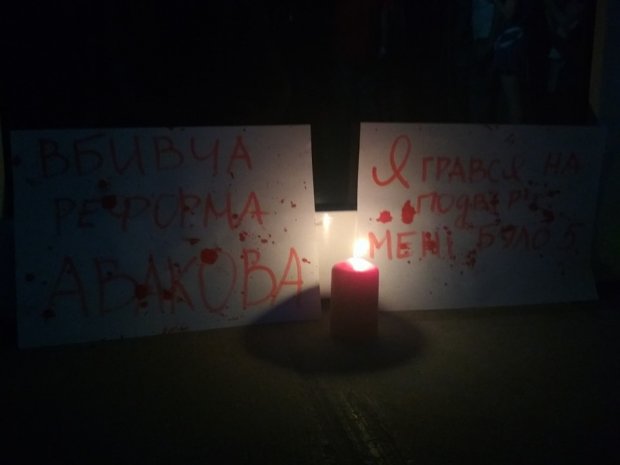 ВБИВЧА
РЕФОРМА
АВАКОВА
Я ГРАВСЯ НА
ПОДВІР'Ї
МЕНІ БУЛО 5